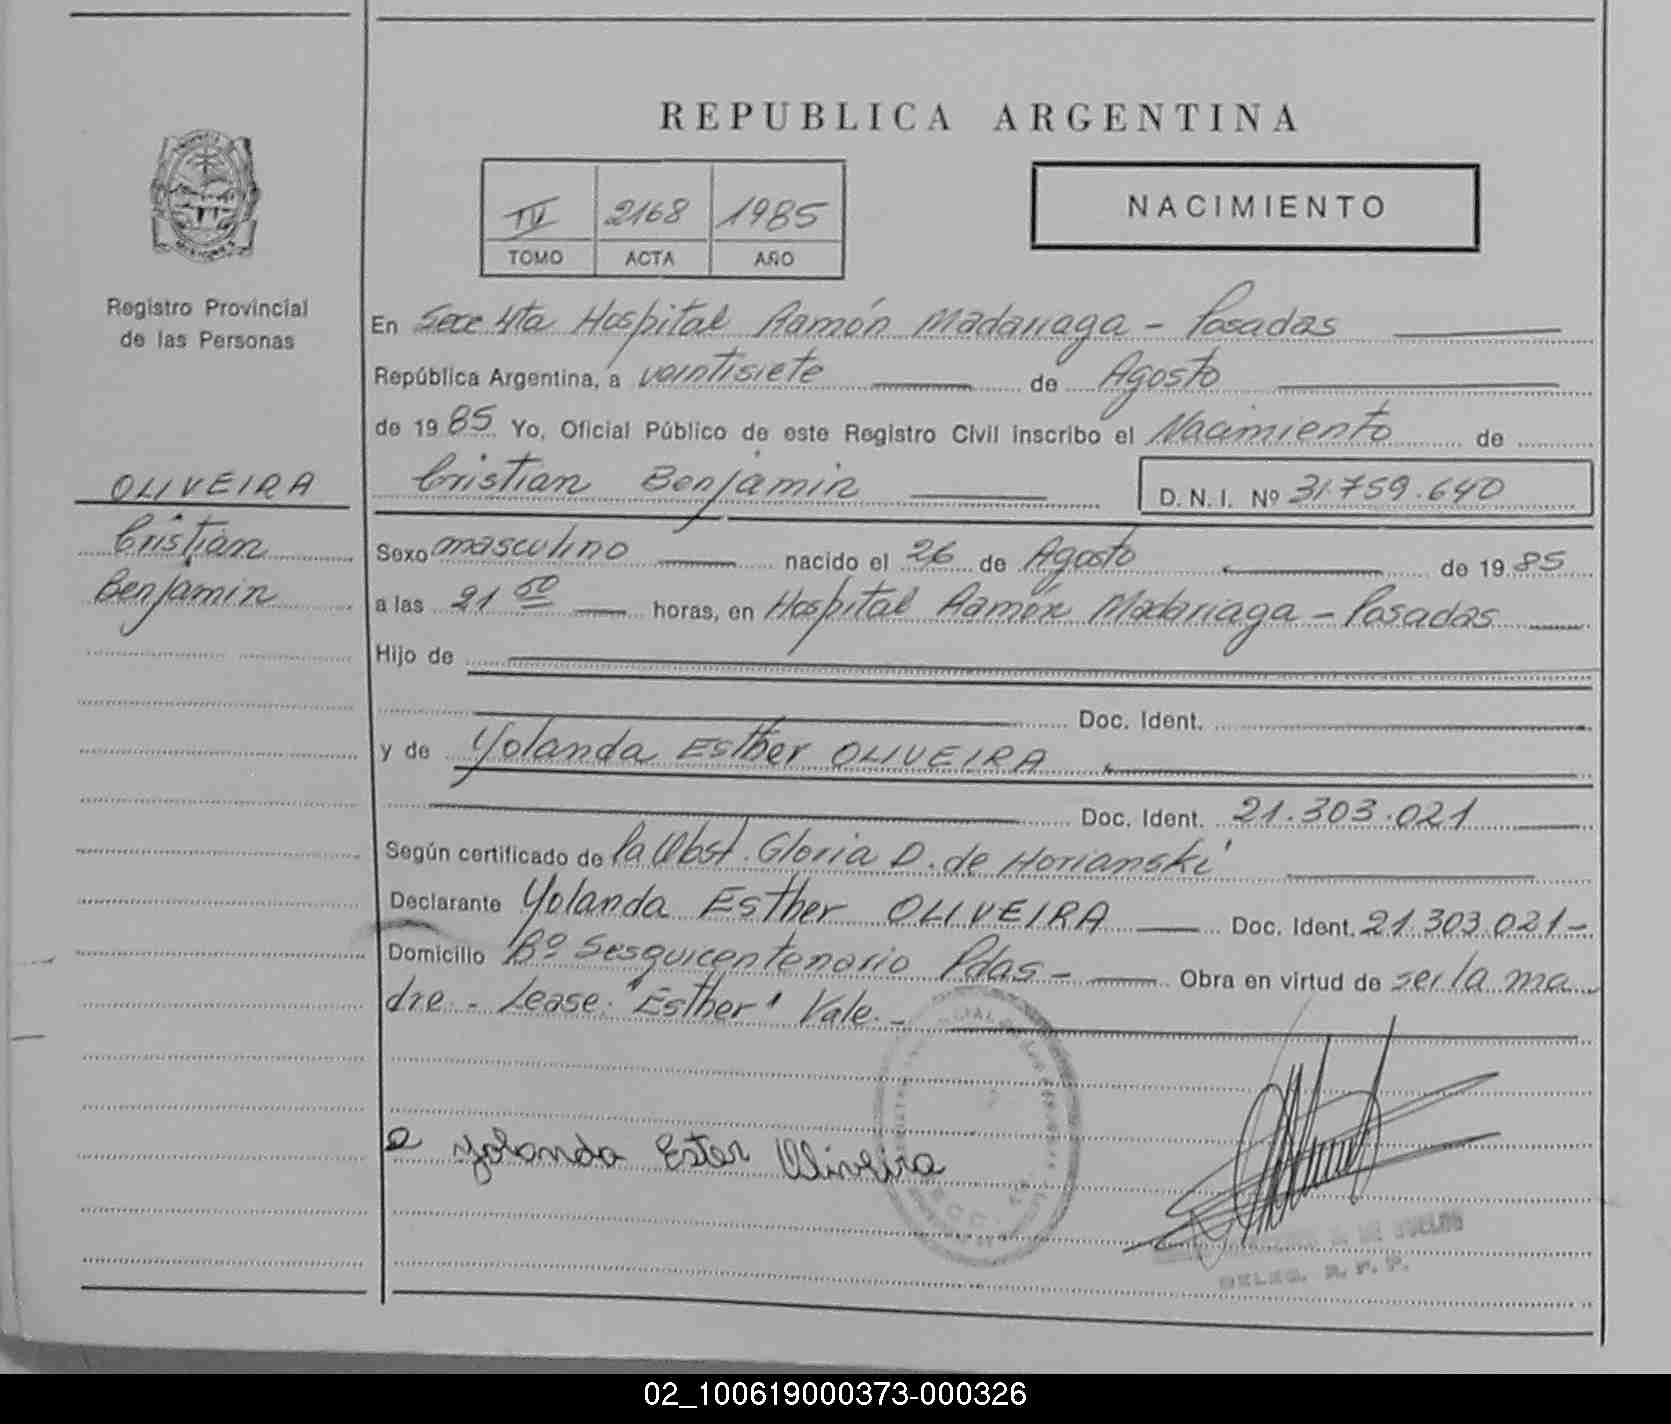 REPUBLICA ARGENTINA
NACIMIENTO
IV 2168 1985
TOMO ACTA AÑO
Registro Provincial
de las Personas
OLIVEIRA
Cristian
Benjamin
En Secc 4ta Hospital Ramón Madariaga - Posadas
República Argentina, a veintisiete de Agosto
de 1985 Yo, Oficial Público de este Registro Civil inscribo el Nacimiento de
Cristian Benjamin D.N.I. Nº 31.759.640
Sexo masculino nacido el 26 de Agosto de 1985
a las 21 50 horas, en Hospital Ramón Madariaga - Posadas
Hijo de
Doc. Ident.
y de Yolanda Esther OLIVEIRA
Doc. Ident. 21.303.021
Según certificado de la Obst. Gloria D. de Horianski
Declarante Yolanda Esther OLIVEIRA Doc. Ident. 21.303.021-
Domicilio Bº Sesquicentenario Pdas- Obra en virtud de ser la ma
dre.- Lease: "Esther" Vale.-
Yolanda Ester Oliveira
02_100619000373-000326